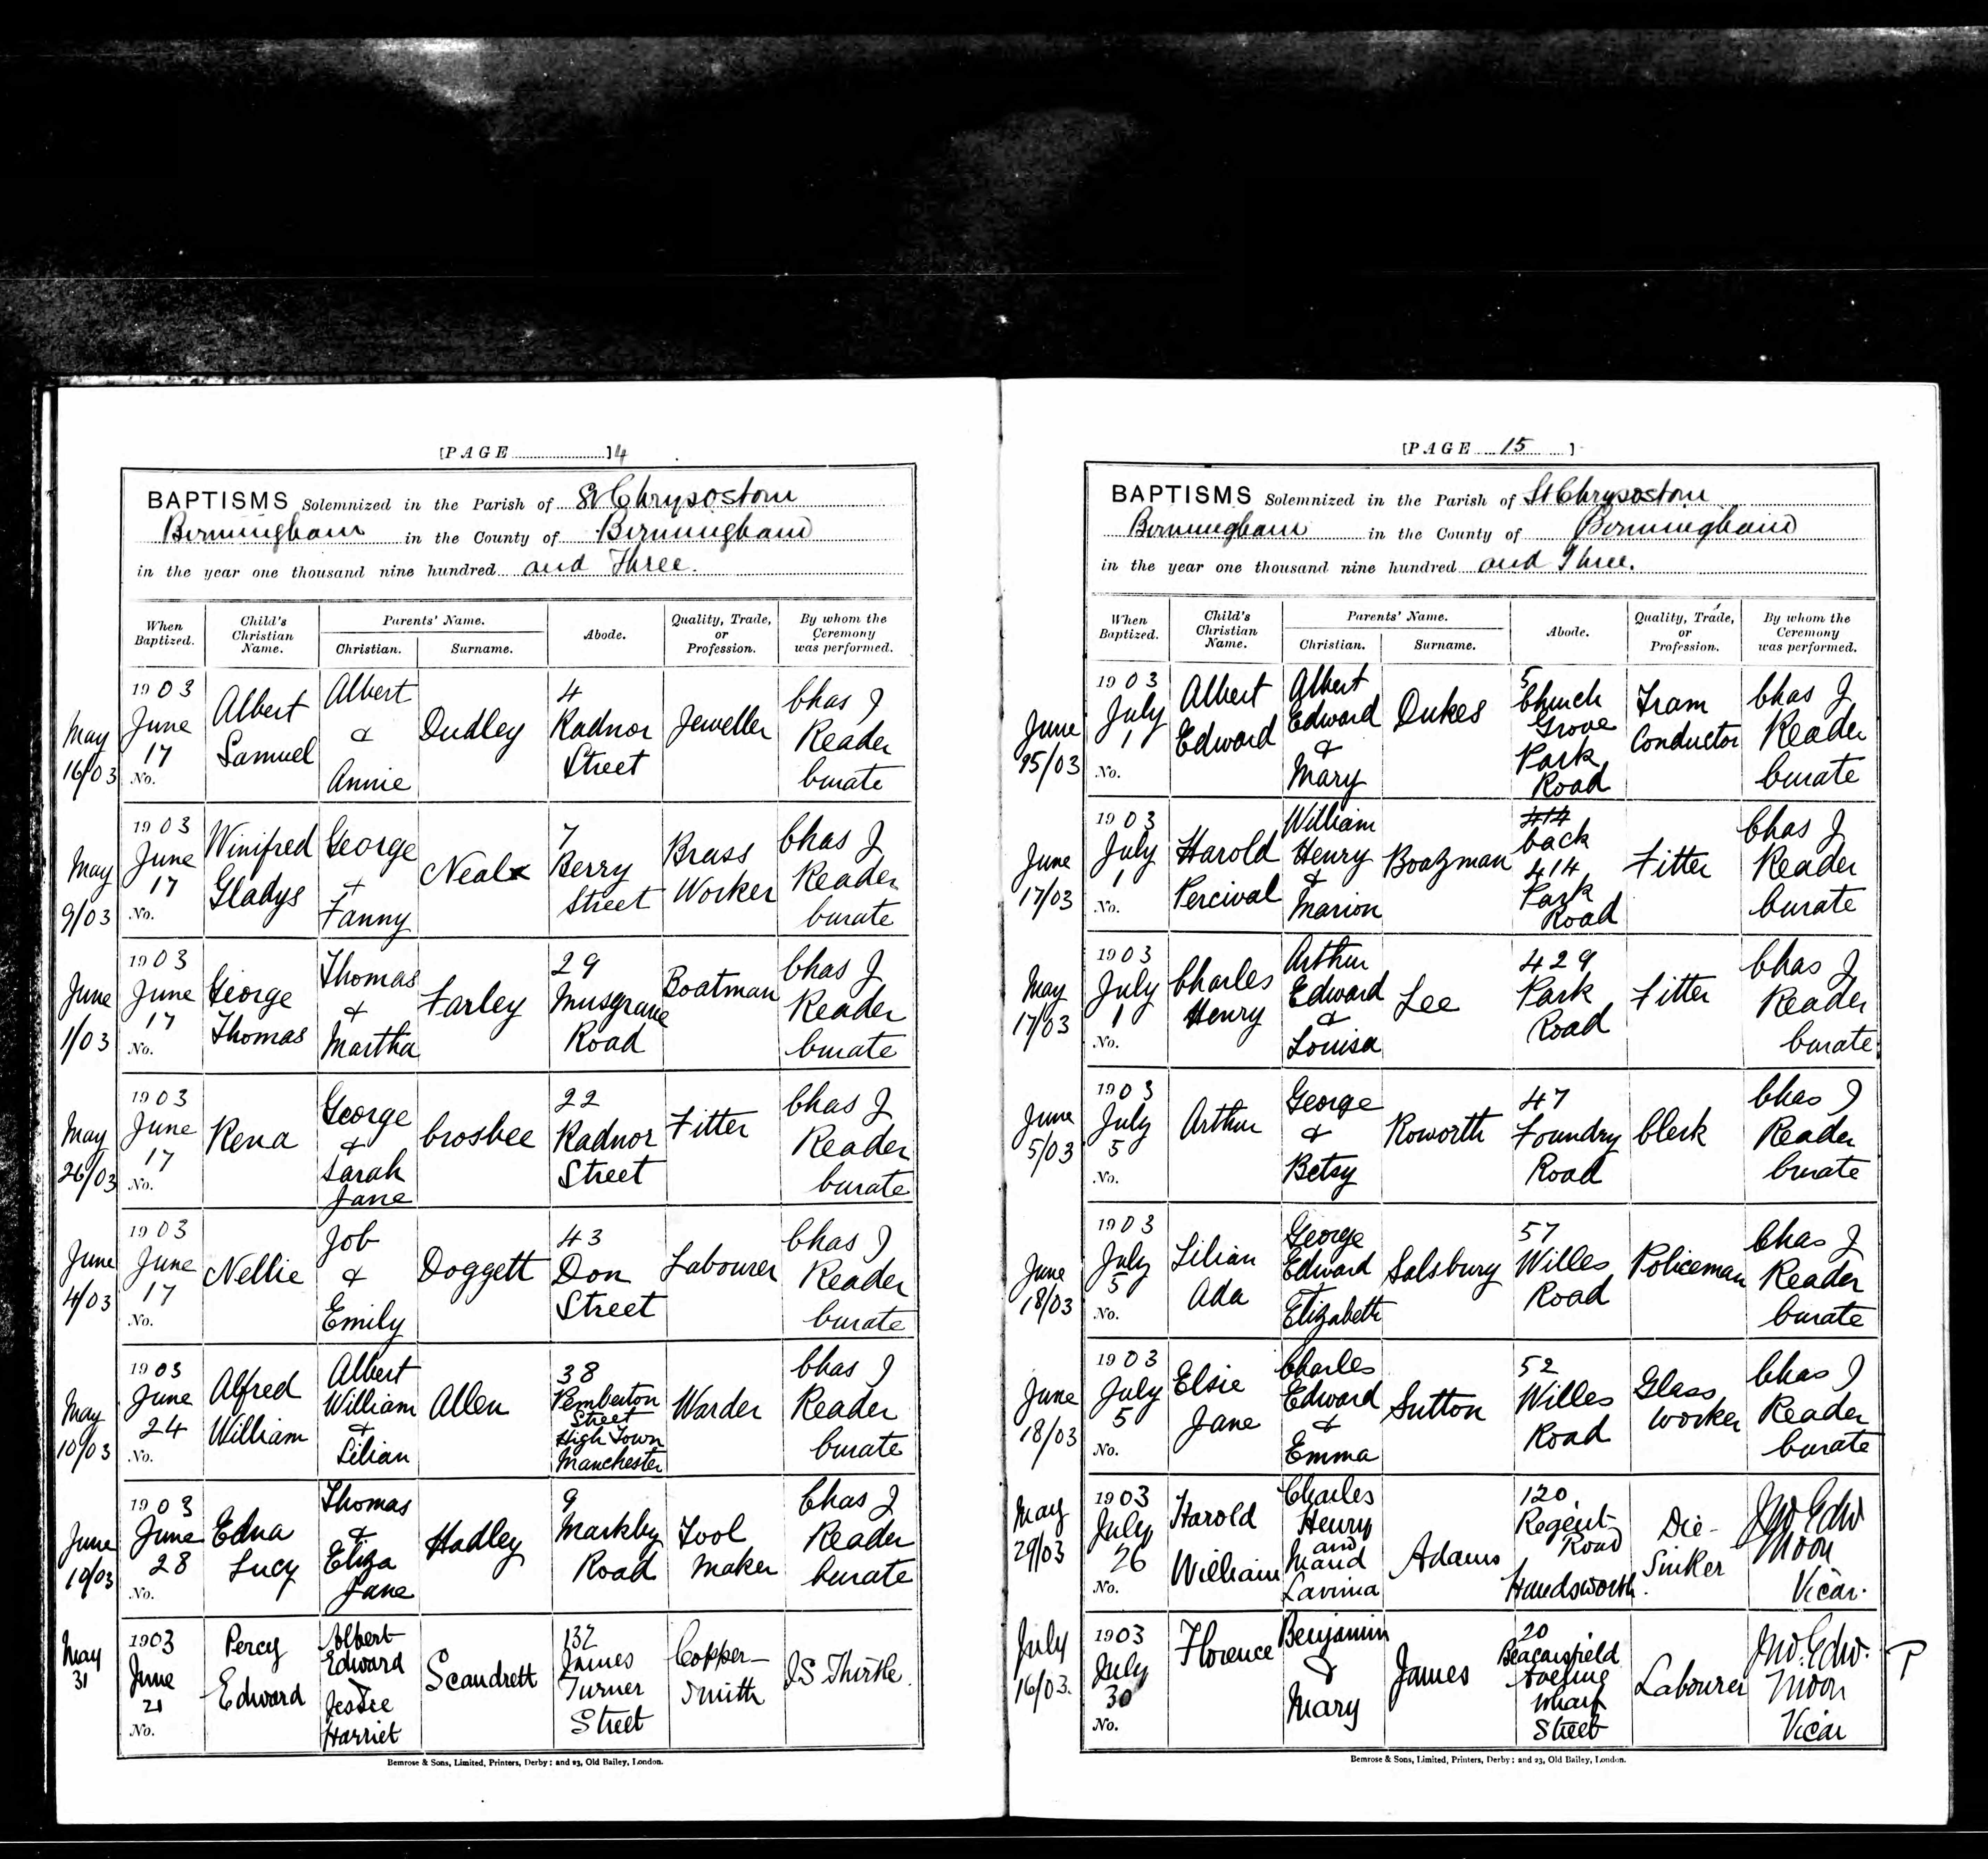 [PAGE ............ ]4
BAPTISMS Solemnized in the Parish of St Chrysostom
Birmingham in the County of Birmingham
in the year one thousand nine hundred and Three.
When Baptized.
Child's Christian Name.
Parents' Name.
Christian.
Surname.
Abode.
Quality, Trade, or Profession.
By whom the Ceremony was performed.
May
16/03
1903
June
17
No.
Albert
Samuel
Albert
&
Annie
Dudley
4
Radnor
Street
Jeweller
Chas J
Reader
Curate
May
9/03
1903
June
17
No.
Winifred
Gladys
George
+
Fanny
Neal
7
Berry
Street
Brass
Worker
Chas J
Reader
Curate
June
1/03
1903
June
17
No.
George
Thomas
Thomas
&
Martha
Farley
29
Musgrave
Road
Boatman
Chas J
Reader
Curate
May
26/03
1903
June
17
No.
Rena
George
&
Sarah
Jane
Crosbee
22
Radnor
Street
Fitter
Chas J
Reader
Curate
June
4/03
1903
June
17
No.
Nellie
Job
&
Emily
Doggett
43
Don
Street
Labourer
Chas J
Reader
Curate
May
10/03
1903
June
24
No.
Alfred
William
Albert
William
&
Lilian
Allen
38
Pemberton
Street
High Town
Manchester
Warder
Chas J
Reader
Curate
June
10/03
1903
June
28
No.
Edna
Lucy
Thomas
&
Eliza
Jane
Hadley
9
Markby
Road
Tool
Maker
Chas J
Reader
Curate
May
31
1903
June
21
No.
Percy
Edward
Albert
Edward
&
Jessie
Harriet
Scandrett
132
James
Turner
Street
Copper-
Smith
J S Thirtle.
Bemrose & Sons, Limited, Printers, Derby; and 23, Old Bailey, London.
[PAGE 15 ]
BAPTISMS Solemnized in the Parish of St Chrysostom
Birmingham in the County of Birmingham
in the year one thousand nine hundred and Three.
When Baptized.
Child's Christian Name.
Parents' Name.
Christian.
Surname.
Abode.
Quality, Trade, or Profession.
By whom the Ceremony was performed.
June
/03
1903
July
1
No.
Albert
Edward
Albert
Edward
&
Mary
Dukes
5
Church
Grove
Park
Road
Tram
Conductor
Chas J
Reader
Curate
June
17/03
1903
July
1
No.
Harold
Percival
William
Henry
&
Marion
Boazman
414
back
414
Park
Road
Fitter
Chas J
Reader
Curate
May
17/03
1903
July
1
No.
Charles
Henry
Arthur
Edward
&
Louisa
Lee
429
Park
Road
Fitter
Chas J
Reader
Curate
June
5/03
1903
July
5
No.
Arthur
George
&
Betsy
Roworth
47
Foundry
Road
Clerk
Chas J
Reader
Curate
June
18/03
1903
July
5
No.
Lilian
Ada
George
Edward
&
Elizabeth
Salsbury
57
Willes
Road
Policeman
Chas J
Reader
Curate
June
18/03
1903
July
5
No.
Elsie
Jane
Charles
Edward
&
Emma
Sutton
52
Willes
Road
Glass
Worker
Chas J
Reader
Curate
May
29/03
1903
July
26
No.
Harold
William
Charles
Henry
and
Maud
Lavinia
Adams
120
Regent
Road
Handsworth.
Die-
Sinker
Jno. Edw
Moon
Vicar.
July
16/03.
1903
July
30
No.
Florence
Benjamin
&
Mary
James
20
Beaconsfield
Avenue
Wharf
Street
Labourer
Jno. Edw.
Moon
Vicar
P
Bemrose & Sons, Limited, Printers, Derby; and 23, Old Bailey, London.